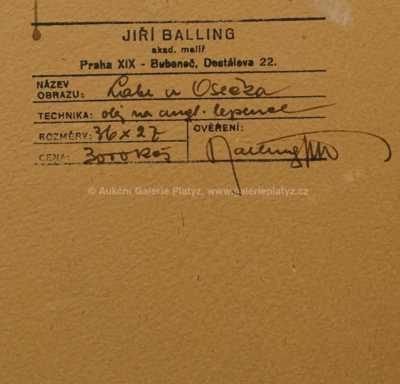 JIŘÍ BALLING
akad. malíř
Praha XIX - Bubeneč, Dostálova 22.
NÁZEV
OBRAZU: Labe u Osečka
TECHNIKA: olej na angl. lepence
ROZMĚRY: 36 x 27
OVĚŘENÍ:
CENA: 3000 Kčs
Balling
© Aukční Galerie Platýz, www.galerieplatyz.cz